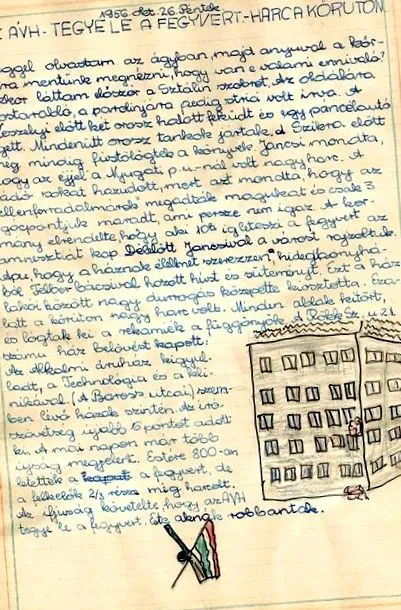 1956 okt. 26. Péntek
ÁVH - TEGYE LE A FEGYVERT - HARC A KÖRÚTON
ggel olvastam az ágyban, majd anyuval a kör-
ra mentünk megnézni, hogy van e valami ennivaló?
kkor láttam először a Sztálin szobrot. Az oldalára
ostaraló, a pardinjára pedig strici volt írva. A
előtt két orosz halott feküdt és egy páncélautó
gett. Mindenütt orosz tankok jártak, a Szikra előtt
ég mindig füstölögtek a könyvek. Jancsi mondta,
ogy az éjjel a Nyugati p.u.-nál volt nagy harc. A
ádió sokat hazudott, mert azt mondta, hogy az
ellenforradalmárok megadták magukat és csak 3
gócpontjuk maradt, ami persze nem igaz. A kor-
mány elrendelte, hogy aki 10h-ig leteszi a fegyvert az
amnesztiát kap. Délelőtt Jancsival a várost rajzoltuk.
Apu, hogy a háznak élelmet szerezzen, hidegkonyhá-
ból Telbor bácsival hozott húst és süteményt. Ezt a ház
lakói között nagy durrogás közepette kiosztotta. Eza-
latt a körúton nagy harc volt. Minden ablak kitört,
és lógtak ki a rekamiék a függönyök. A Rökk Sz. u. 21
számú ház belövést kapott.
Az alkalmi áruház kigyul-
ladt, a Technológia és a kli-
nikával (A Baross utcai) szem-
ben lévő házak szintén. Az író-
szövetség újabb 5 pontot adott
ki. A mai napon már több
újság megjelent. Estére 800-an
letették a fegyvert, de
a felkelők 2/3 része még harcolt.
Az ifjúság követelte, hogy az ÁVH
tegye le a fegyvert. Este aknák robbantak.